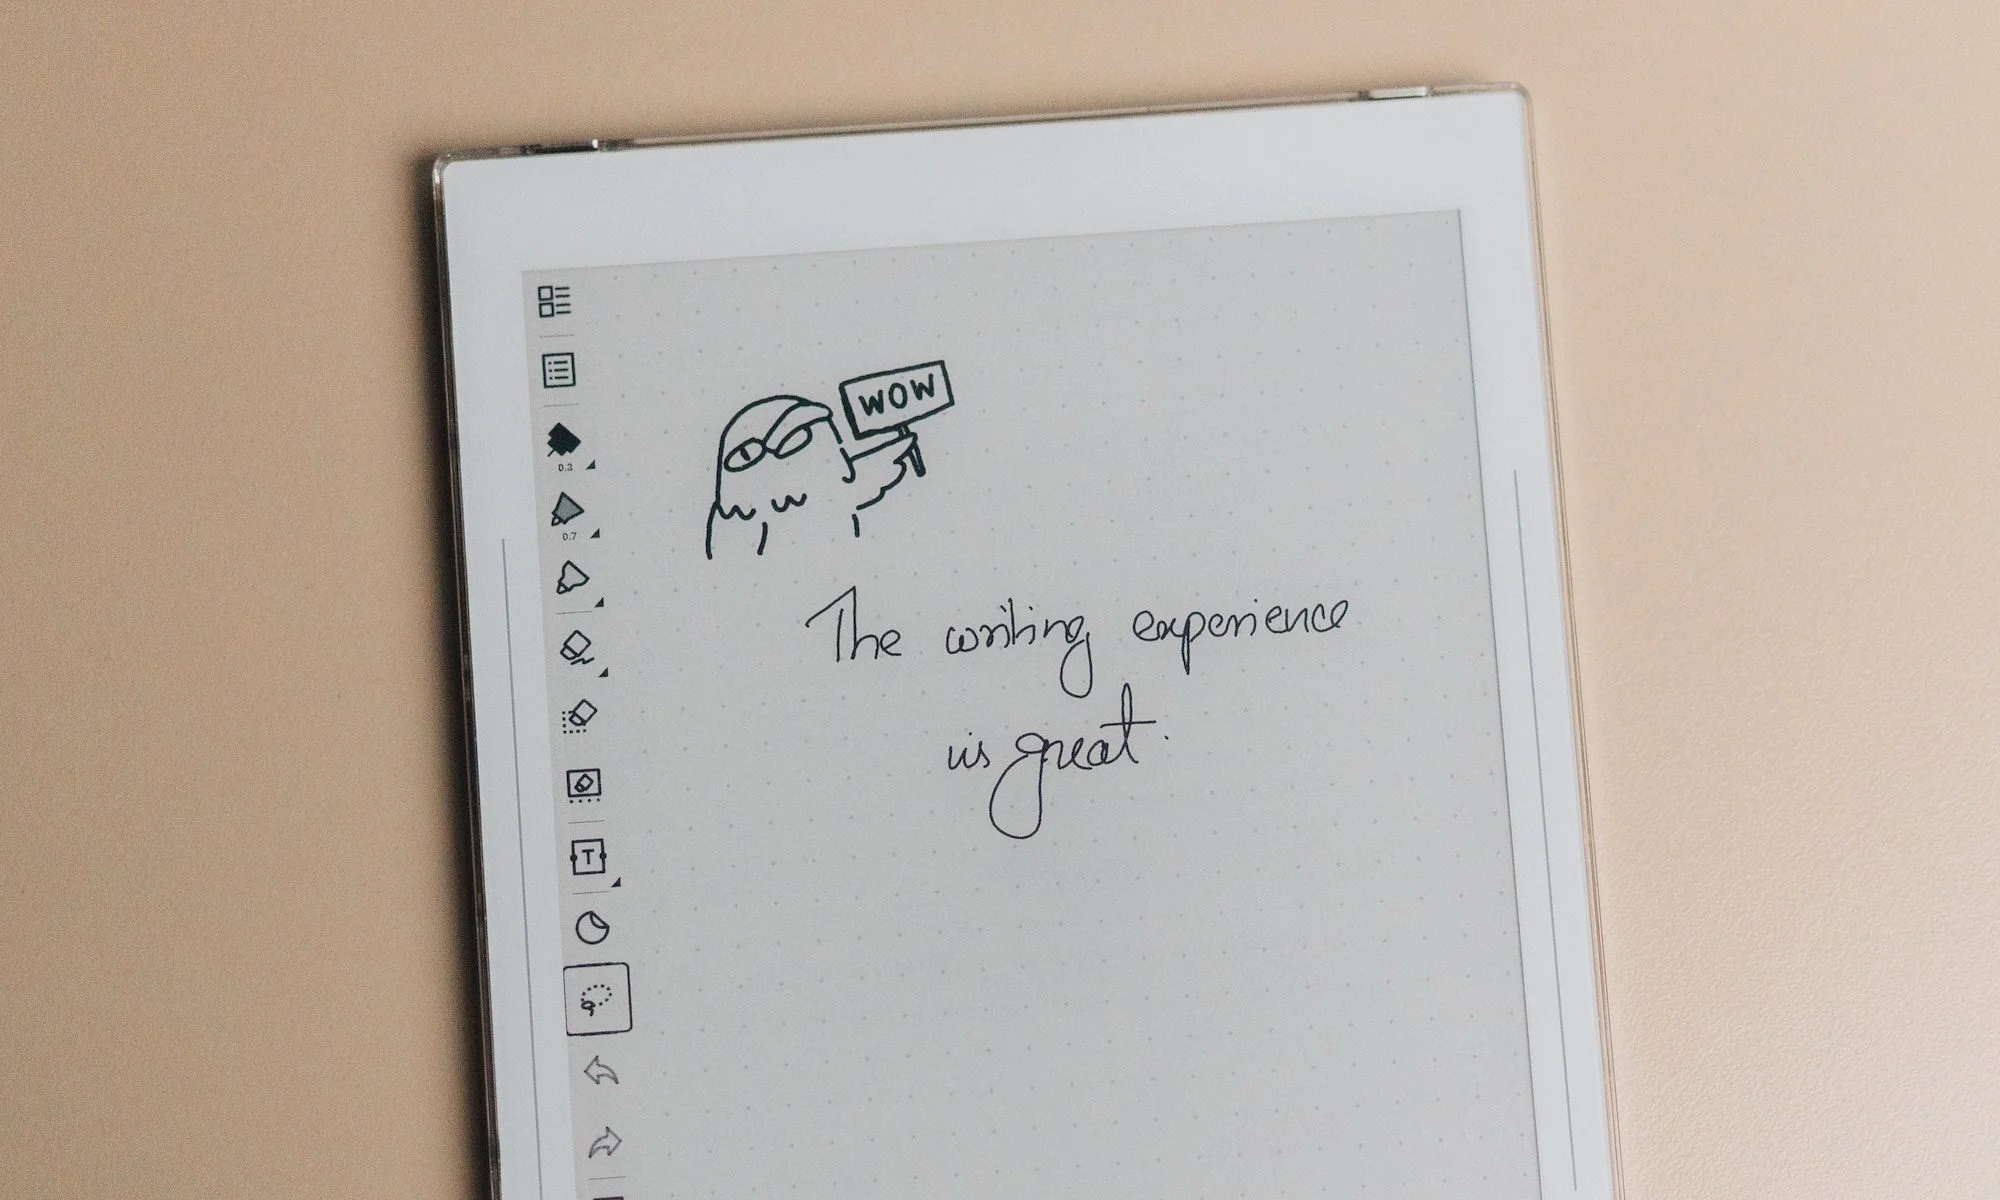 WOW
The writing experience
is great.
0.3
0.7
T